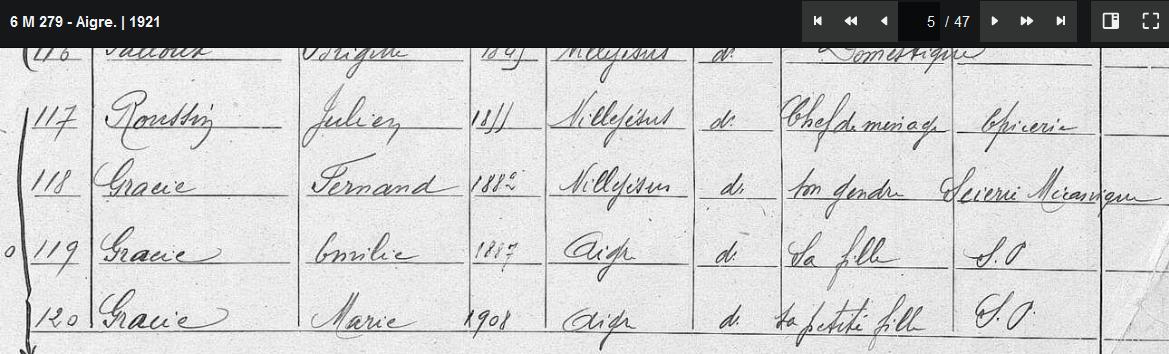 6 M 279 - Aigre. | 1921 5 / 47
116 1845 Villejésus d: Domestique
117 Roussin Julien 1855 Villejésus d: Chef de ménage Epicerie
118 Gracie Fernand 1882 Villejésus d: son gendre Scierie Mécanique
119 Gracie Emilie 1887 Aigre d: Sa fille S. P
120 Gracie Marie 1908 Aigre d: Sa petite fille S. P.